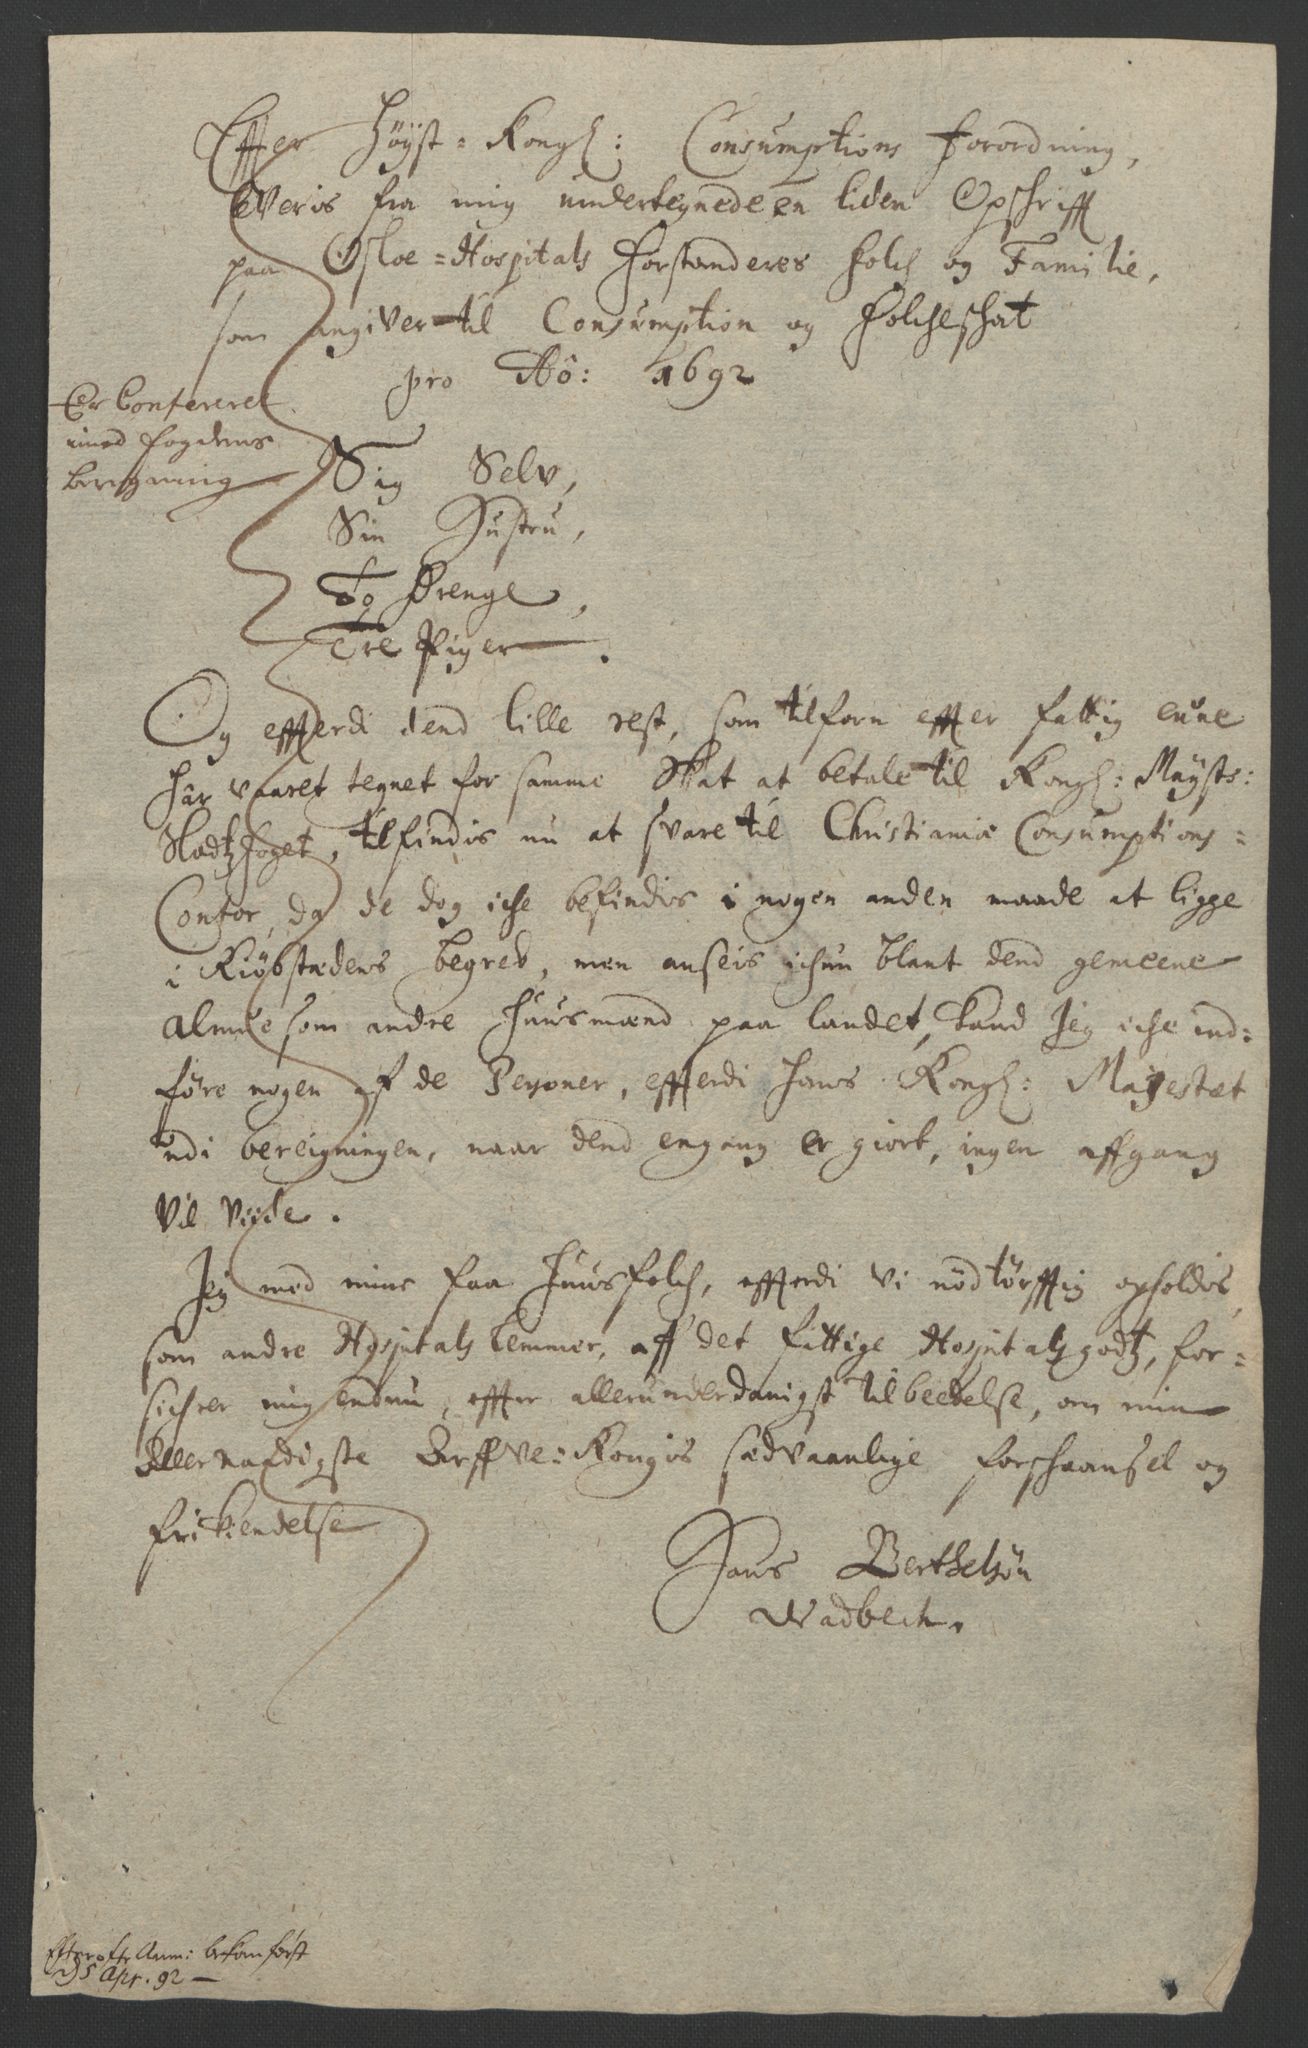 Effter Høyst-Kongl: Consumptions Forordning,
leveris fra mig undertegnede en liden Opschrifft
paa Osloe-Hospitals Forstanderes folch og Familie,
som angiver til Consumption og Folcheschat
pro Aô: 1692
Er Confereret
imod fogdens
beregning
Sig Selv,
Sin Hustru,
To Drenge,
Tre Piger.
Og effterdi dend lille rest, som tilforn effter fattig eune
har vaaret tegnet for samme Skat at betale til Kongl: Mayts:
Slodtzfoget, tilfindis nu at svare til Christianiæ Consumptions-
Contor, da de dog iche befindis i nogen anden maade at ligge
i Kiøbstædens begreb, men anseis ichun blant dend gemeene
Almue som andre Huusmænd paa landet, kand Jeg iche ind-
føre nogen af de Personer, effterdi Hans Kongl: Mayestæt
udi bereigningen, naar dend engang er giort, ingen affgang
vil viide.
Jeg med mine faa Huusfolch, effterdi vi nødtørfftig opholdis,
som andre Hospitals lemmer, aff det fattige Hospitals godtz, for-
sichrer mig endnu, effter allerunderdanigst tilbeedelse, om min
Allernaadigste Arffve-Kongis sædvaanlige forschaansel og
frikiendelse
Hans Berthelsøn
Wadbech.
bekom først
d 5 Apr. 92